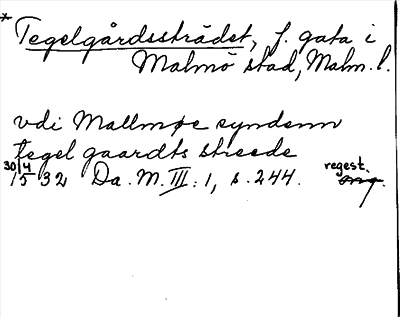 * Tegelgårdssträdet, f. gata i
Malmö stad, Malm. l.
vdi Mallmøe syndenn
tegel gaardts streede
30/4 1532 Da. M. III: 1, s. 244. regest.